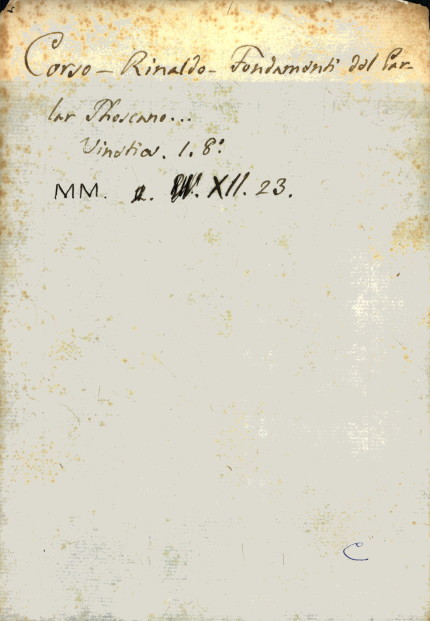 Corso - Rinaldo - Fondamenti del Par-
lar Thoscano...
Vinetia. 1. 8º
MM. a. XII. 23.
C